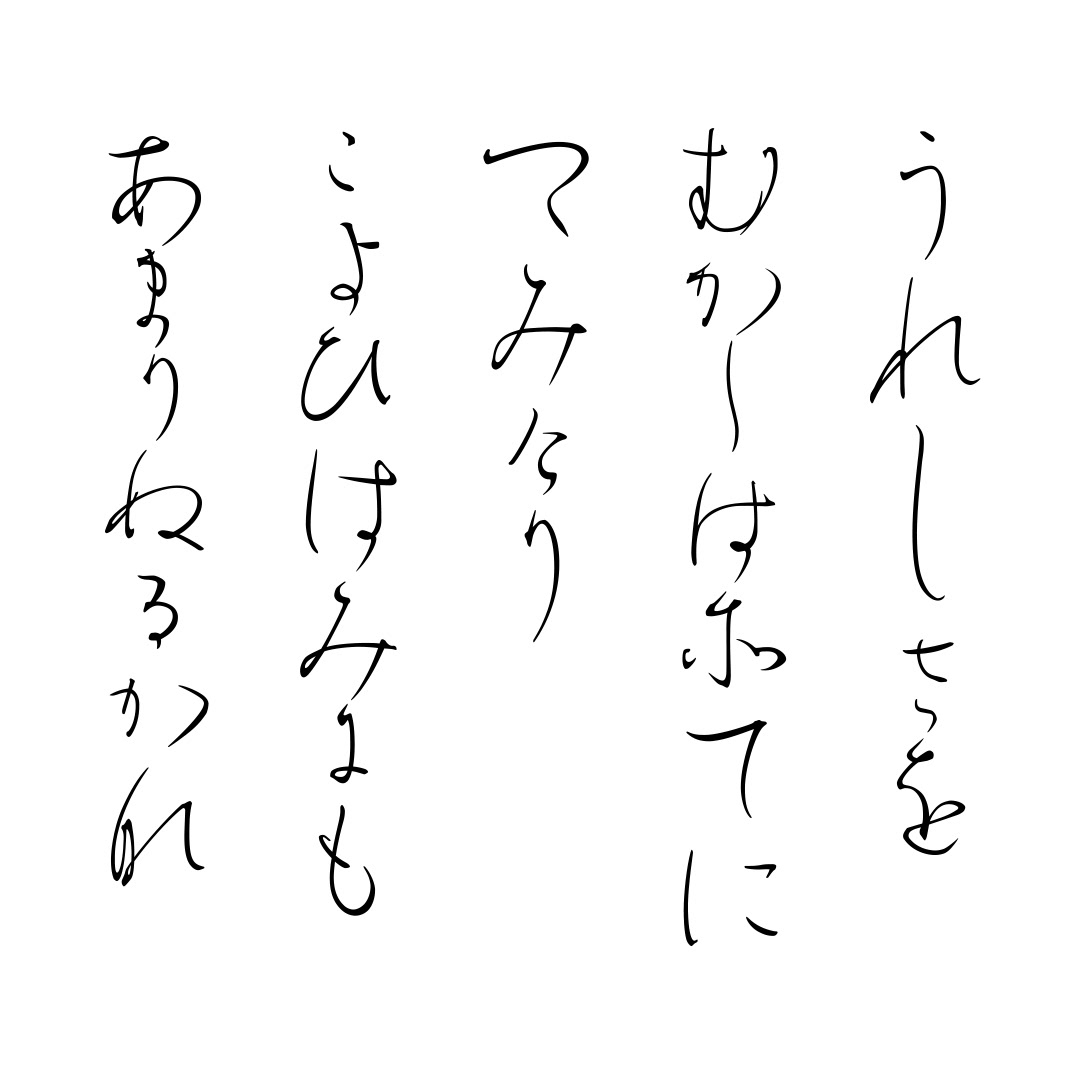 うれしさを
むかしはそてに
つゝみけり
こよひはみにも
あまりぬるかな